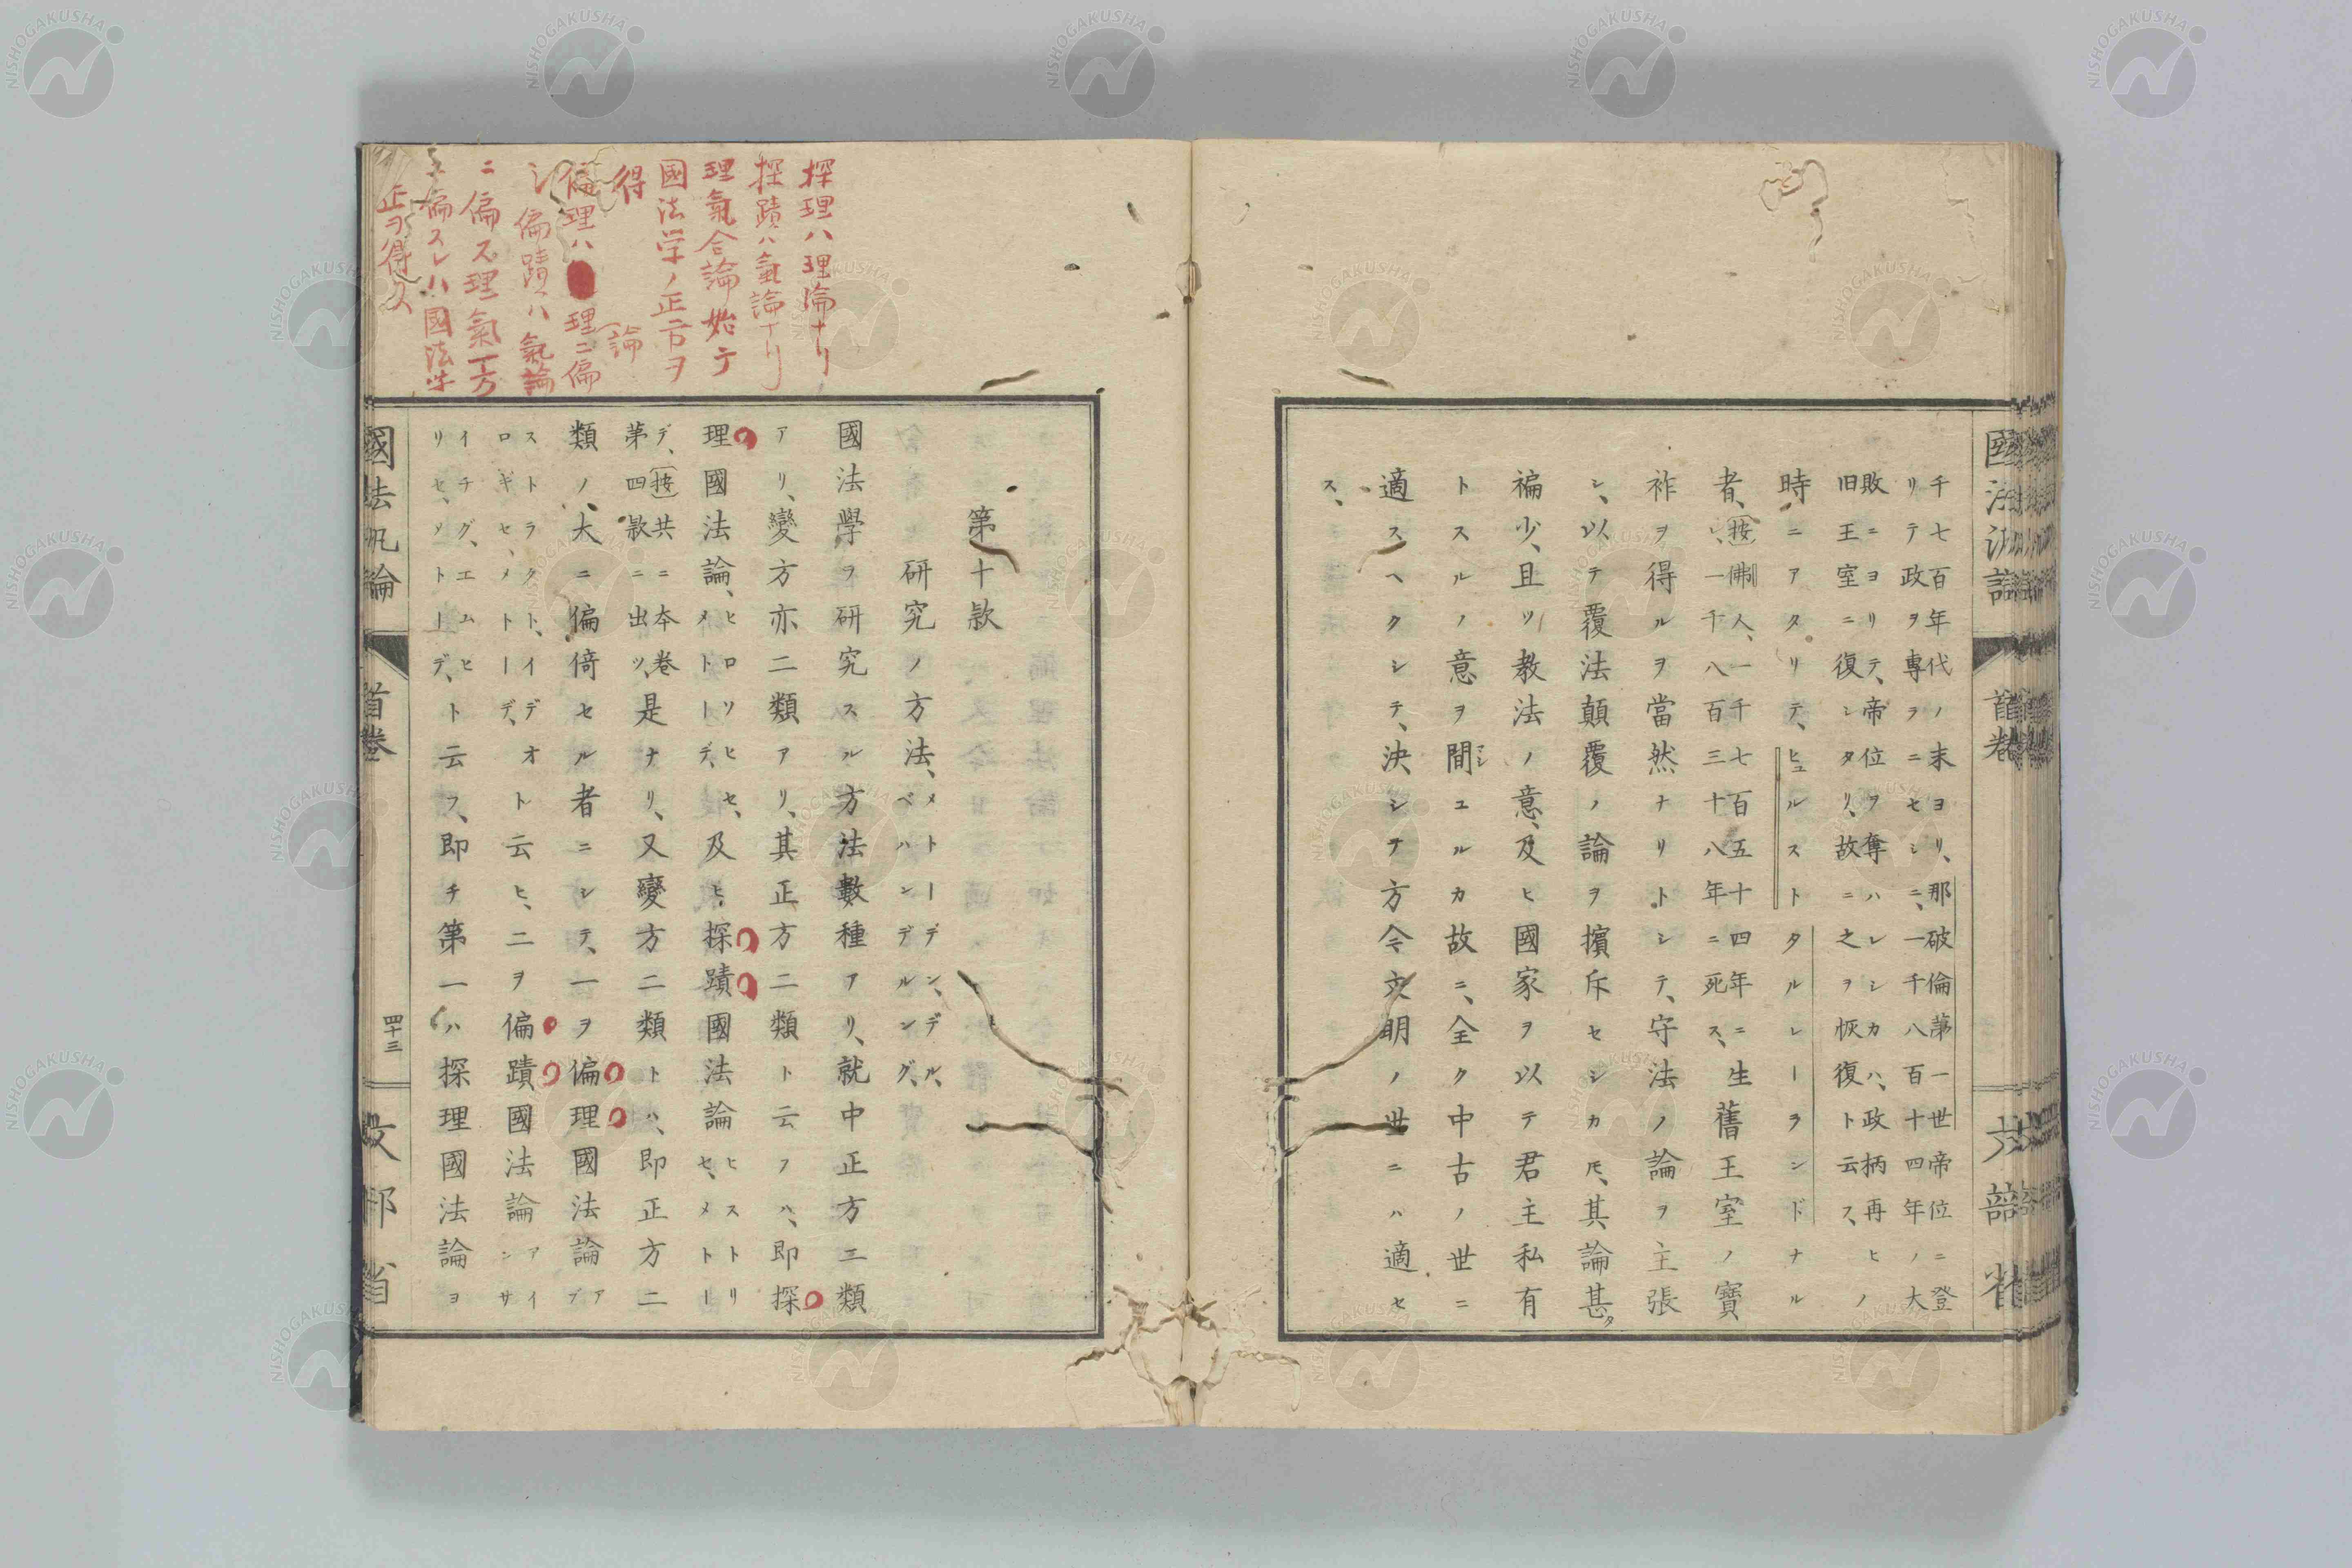 千七百年代ノ末ヨリ、那破倫第一世帝位ニ登
リテ政ヲ專ラニセシニ、一千八百十四年ノ大
敗ニヨリテ、帝位ヲ奪ハレシカハ、政柄再ヒ
旧王室ニ復シタリ、故ニ之ヲ恢復ト云ス、ノ
時ニアタリテ、ヒュルストタルレーランドナル
者、(按)佛人、一千七百五十四年ニ生
レ、一千八百三十八年ニ死ス、舊王室ノ寶
祚ヲ得ルヲ當然ナリトシテ、守法ノ論ヲ主張
シ、以テ覆法顛覆ノ論ヲ擯斥セシカ𪜈、其論甚タ
褊少、且ツ教法ノ意、及ヒ國家ヲ以テ君主私有
トスルノ意ヲ間マシユルカ故ニ、全ク中古ノ世ニ
適スヘクシテ、決シテ方今文明ノ世ニハ適セ
ス、
國法汎論 首卷
文部省
探理ハ理論ナリ
探蹟ハ氣論ナリ
理氣合論始テ
國法学ノ正方ヲ
得
論
偏理ハ理ニ偏
シ偏蹟ハ氣論
ニ偏ス理氣一方
ニ偏スレハ國法学
正ヲ得ス
第十款
研究ノ方法、メトーデン、デル、
ベハンデルング、
國法學ヲ研究スル方法數種アリ、就中正方二類
アリ、變方亦二類アリ、其正方二類ト云フハ、即探
理國法論、ヒロソヒセ、メトーデ、及ヒ探蹟國法論ヒストリセ、メトー
デ、(按)共ニ本卷第四款ニ出ツ、是ナリ、又變方二類トハ、即正方二
類ノ、大ニ偏倚セル者ニシテ、一ヲ偏理國法論アブ
ストラクト、イデオロギセ、メトーデ、ト云ヒ、二ヲ偏蹟國法論アインサ
イチグ、エムヒリセ、メトーデ、ト云フ、即チ第一ハ探理國法論ヲ
國法汎論 首卷 四十三 文部省